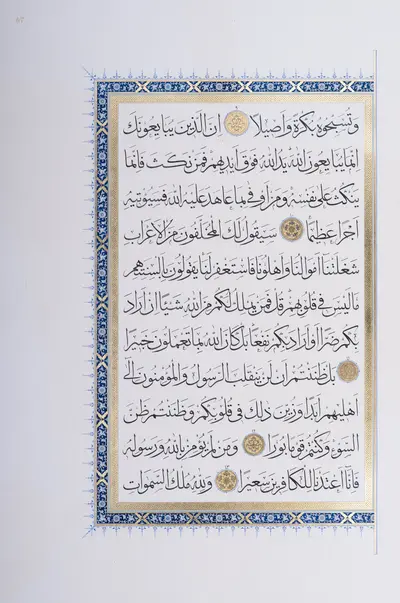 ٨٢
وتسبحوه بكرة وأصيلا ان الذين يبايعونك
انما يبايعون الله يد الله فوق أيديهم فمن نكث فانما
ينكث على نفسه ومن أوفى بما عاهد عليه الله فسيؤتيه
أجرا عظيما سيقول لك المخلفون من الأعراب
شغلتنا أموالنا وأهلونا فاستغفر لنا يقولون بألسنتهم
ما ليس في قلوبهم قل فمن يملك لكم من الله شيئا ان أراد
بكم ضرا أو أراد بكم نفعا بل كان الله بما تعملون خبيرا
بل ظننتم أن لن ينقلب الرسول والمؤمنون الى
أهليهم أبدا وزين ذلك في قلوبكم وظننتم ظن
السوء وكنتم قوما بورا ومن لم يؤمن بالله ورسوله
فانا أعتدنا للكافرين سعيرا ولله ملك السموات